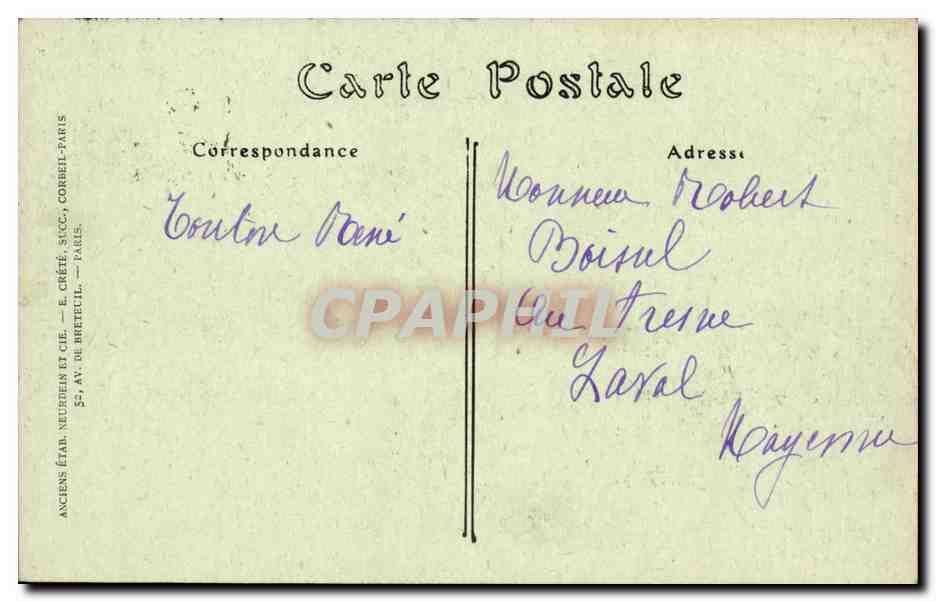 Carte Postale
Correspondance
Adresse
Tonton René
Monsieur Robert
Boisul
Au Fresne
Laval
Mayenne
CPAPHIL
ANCIENS ÉTAB. NEURDEIN ET CIE. — E. CRÉTÉ, SUCC., CORBEIL-PARIS
52, AV. DE BRETEUIL. — PARIS.